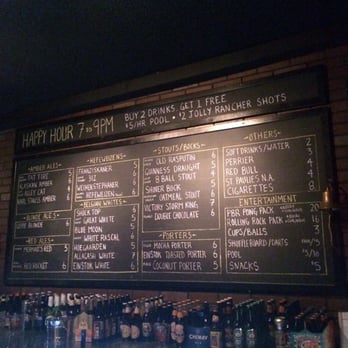 HAPPY HOUR 7 TO 9PM
BUY 2 DRINKS, GET 1 FREE
$5/HR POOL • $2 JOLLY RANCHER SHOTS
AMBER ALES
FAT TIRE
ALASKAN AMBER
ALLEY CAT
BLONDE ALES
RED ALES
RED ROCKET 6
HEFEWEIZENS
FRANZISKANER
WEIHENSTEPHANER
BELGIAN WHITES
SHOCK TOP
GREAT WHITE
BLUE MOON
WHITE RASCAL
HOEGAARDEN
ALLAGASH WHITE
EINSTOK WHITE 6
STOUTS/BOCKS
OLD RASPUTIN
GUINNESS DRAUGHT
8 BALL STOUT
SHINER BOCK
OATMEAL STOUT
VICTORY STORM KING
DOUBLE CHOCOLATE
PORTERS
MOCHA PORTER 6
EINSTOK TOASTED PORTER 6
COCONUT PORTER 5
OTHERS
SOFT DRINKS/WATER 2
PERRIER 3
RED BULL 4
ST. PAULIS N.A. 4
CIGARETTES 8
ENTERTAINMENT
PBR PONG PACK 20
ROLLING ROCK PACK 16
CUPS/BALLS 3
SHUFFLEBOARD/DARTS
POOL
SNACKS $5